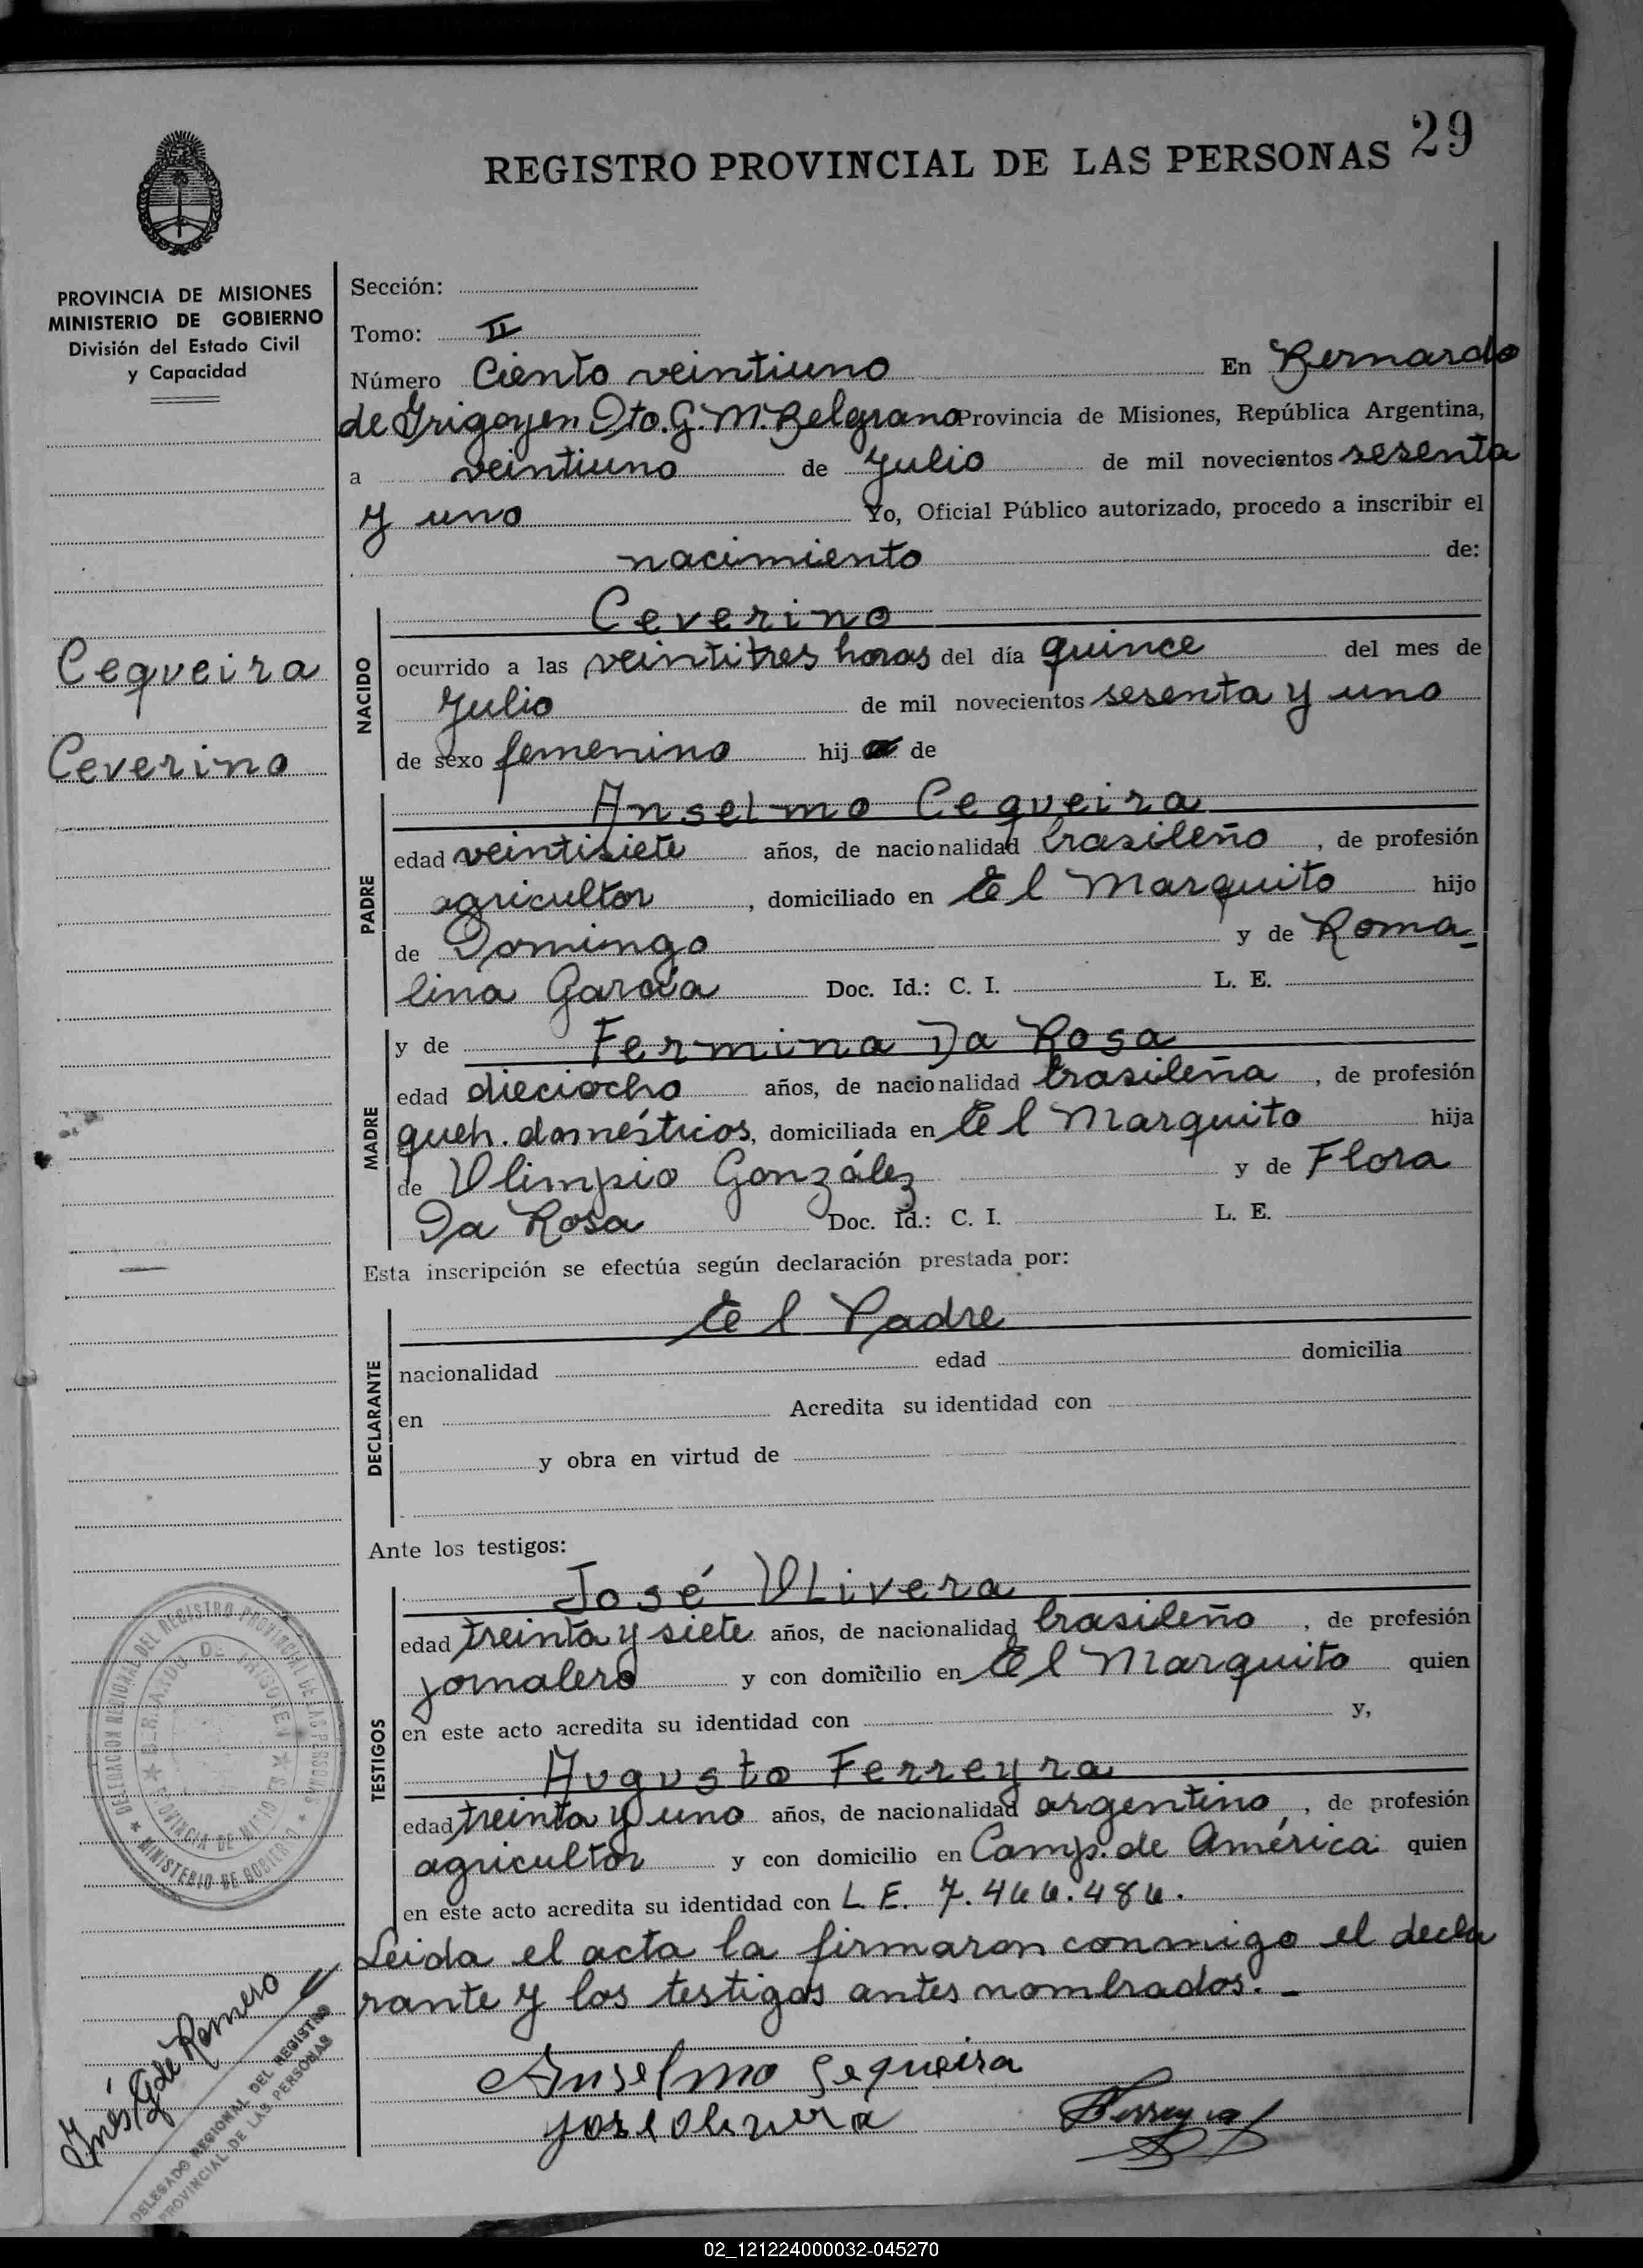 29
REGISTRO PROVINCIAL DE LAS PERSONAS
PROVINCIA DE MISIONES
MINISTERIO DE GOBIERNO
División del Estado Civil
y Capacidad
Cequeira
Ceverino
Sección:
Tomo: II
Número Ciento veintiuno En Bernardo
de Irigoyen Dto. G. M. Belgrano Provincia de Misiones, República Argentina,
a veintiuno de Julio de mil novecientos sesenta
y uno Yo, Oficial Público autorizado, procedo a inscribir el
nacimiento de:
NACIDO
Ceverino
ocurrido a las veintitres horas del día quince del mes de
Julio de mil novecientos sesenta y uno
de sexo femenino hij de
PADRE
Anselmo Cequeira
edad veintisiete años, de nacionalidad brasileño, de profesión
agricultor, domiciliado en El Marquito hijo
de Domingo y de Roma-
lina García Doc. Id.: C. I. L. E.
MADRE
y de Fermina Da Rosa
edad dieciocho años, de nacionalidad brasileña, de profesión
queh. domésticos, domiciliada en El Marquito hija
de Olimpio González y de Flora
Da Rosa Doc. Id.: C. I. L. E.
Esta inscripción se efectúa según declaración prestada por:
DECLARANTE
El Padre
nacionalidad edad domicilia
en Acredita su identidad con
y obra en virtud de
Ante los testigos:
TESTIGOS
José Olivera
edad treinta y siete años, de nacionalidad brasileño, de profesión
jornalero y con domicilio en El Marquito quien
en este acto acredita su identidad con y,
Augusto Ferreyra
edad treinta y uno años, de nacionalidad argentino, de profesión
agricultor y con domicilio en Camp. de América quien
en este acto acredita su identidad con L. E. 7.466.486.
Leida el acta la firmaron conmigo el decla
rante y los testigos antes nombrados.-
Anselmo Sequeira
Jose Olivera Ferreyra
DELEGACION REGIONAL DEL REGISTRO PROVINCIAL DE LAS PERSONAS
MINISTERIO DE GOBIERNO
BERNARDO DE IRIGOYEN
PROVINCIA DE MISIONES
Inés G de Romero
DELEGADO REGIONAL DEL REGISTRO
PROVINCIAL DE LAS PERSONAS
02_121224000032-045270